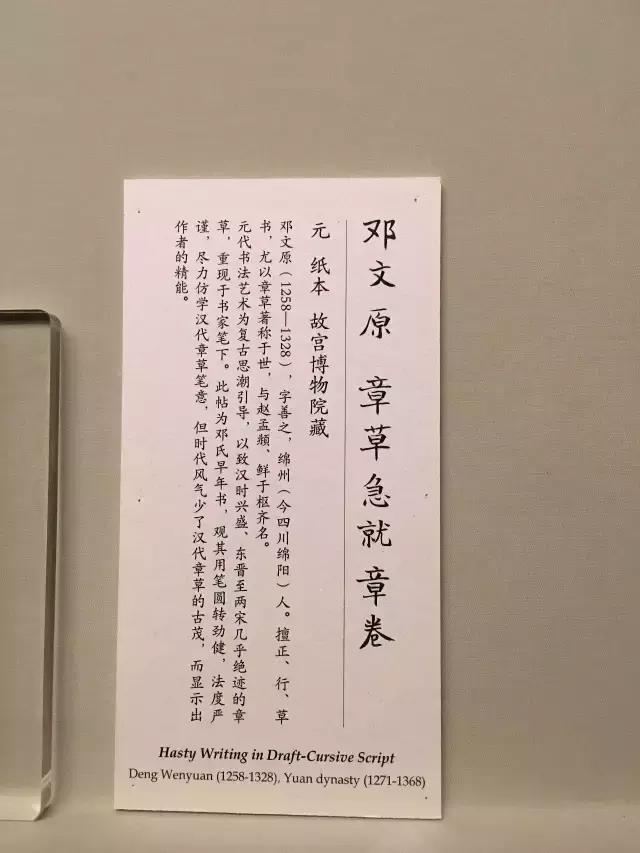 邓文原 章草急就章卷
元 纸本 故宫博物院藏
邓文原（1258—1328），字善之，绵州（今四川绵阳）人。擅正、行、草
书，尤以章草著称于世，与赵孟頫、鲜于枢齐名。
元代书法艺术为复古思潮引导，以致汉时兴盛、东晋至两宋几乎绝迹的章
草，重现于书家笔下。此帖为邓氏早年书，观其用笔圆转劲健，法度严
谨，尽力仿学汉代章草笔意，但时代风气少了汉代章草的古茂，而显示出
作者的精能。
Hasty Writing in Draft-Cursive Script
Deng Wenyuan (1258-1328), Yuan dynasty (1271-1368)